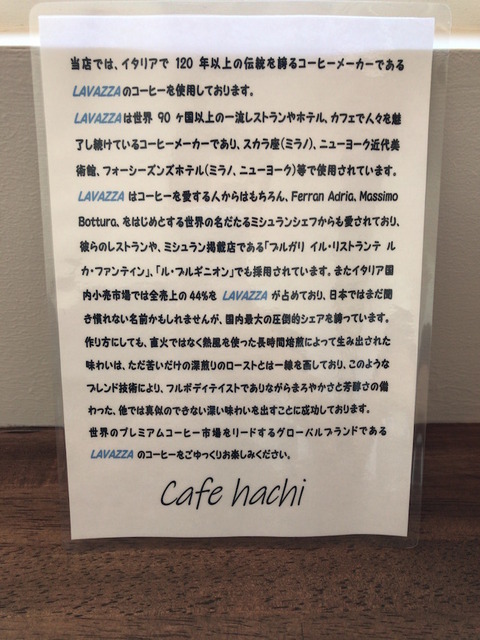 当店では、イタリアで 120 年以上の伝統を誇るコーヒーメーカーである
LAVAZZAのコーヒーを使用しております。
LAVAZZAは世界 90 ヶ国以上の一流レストランやホテル、カフェで人々を魅
了し続けているコーヒーメーカーであり、スカラ座(ミラノ)、ニューヨーク近代美
術館、フォーシーズンズホテル(ミラノ、ニューヨーク)等で使用されています。
LAVAZZA はコーヒーを愛する人からはもちろん、Ferran Adria、Massimo
Bottura、をはじめとする世界の名だたるミシュランシェフからも愛されており、
彼らのレストランや、ミシュラン掲載店である「ブルガリ イル・リストランテ ル
カ・ファンティン」、「ル・ブルギニオン」でも採用されています。またイタリア国
内小売市場では全売上の 44%を LAVAZZA が占めており、日本ではまだ聞
き慣れない名前かもしれませんが、国内最大の圧倒的シェアを誇っています。
作り方にしても、直火ではなく熱風を使った長時間焙煎によって生み出された
味わいは、ただ苦いだけの深煎りのローストとは一線を画しており、このような
ブレンド技術により、フルボディテイストでありながらまろやかさと芳醇さの備
わった、他では真似のできない深い味わいを出すことに成功しております。
世界のプレミアムコーヒー市場をリードするグローバルブランドである
LAVAZZA のコーヒーをごゆっくりお楽しみください。
Cafe hachi